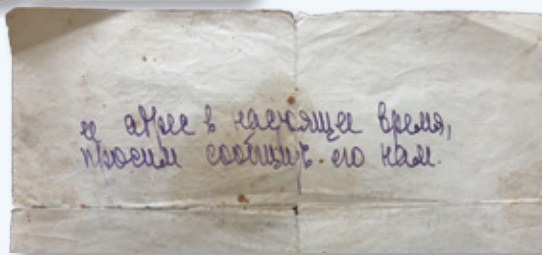 ее адрес в настоящее время,
просим сообщить его нам.